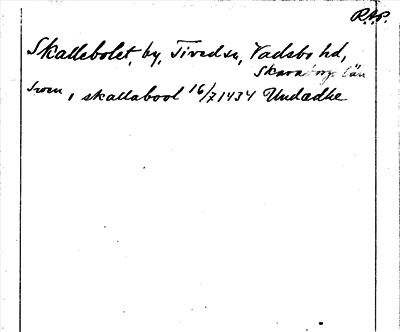 R.A.P.
Skallebolet, by, Tiveds sn, Vadsbo hd,
Skaraborgs län
Swen i skallabool 16/7 1434 Undædhe